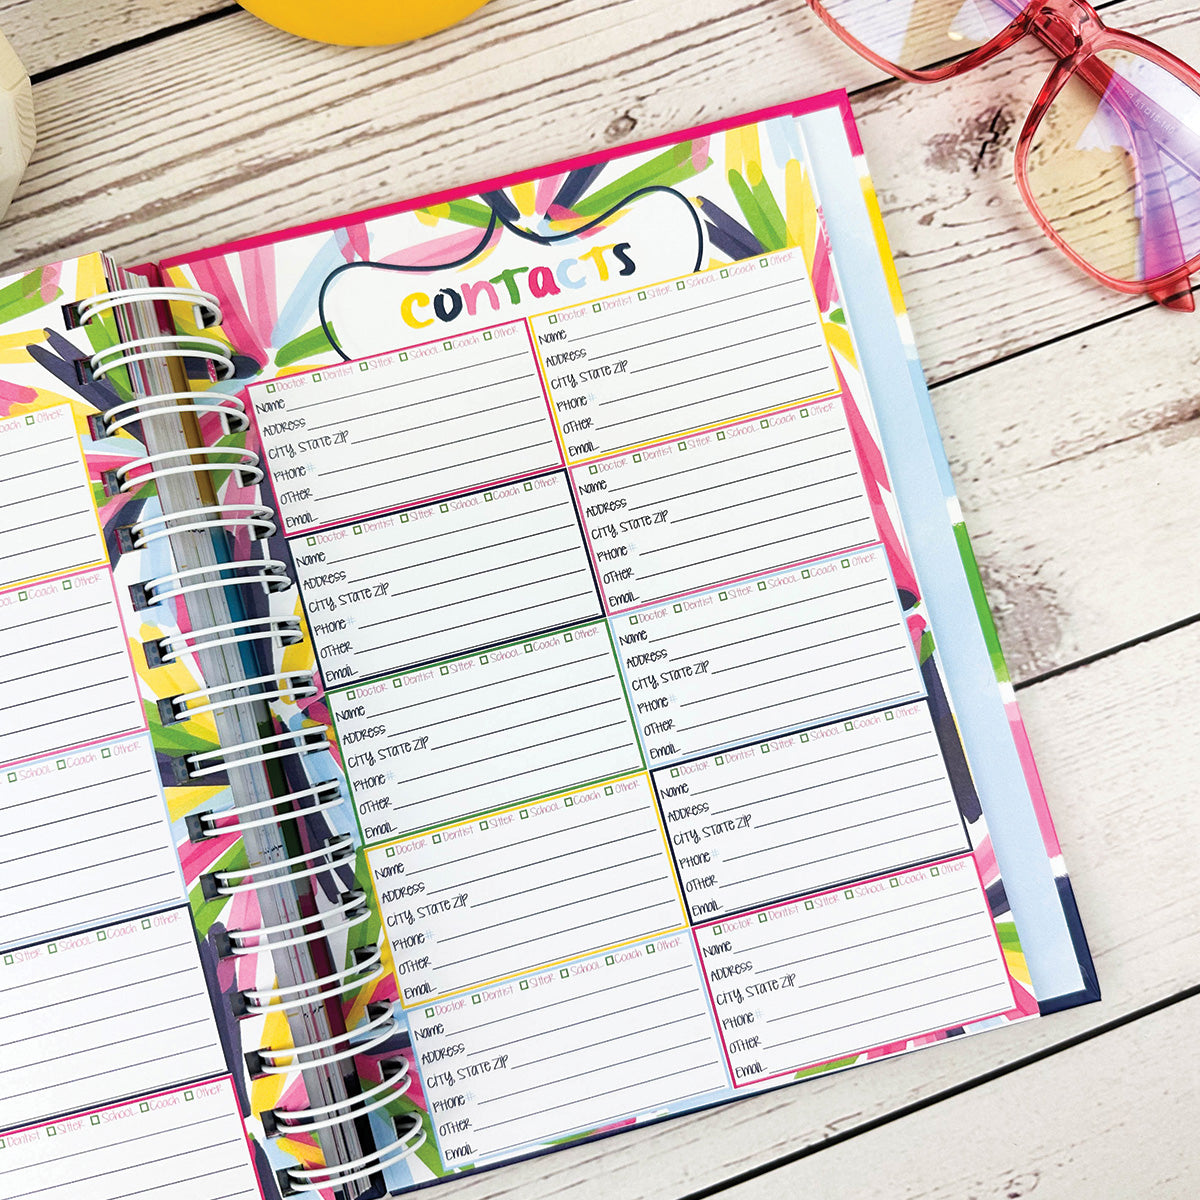 CONTACTS
Doctor Dentist Sitter School Coach Other
Name
Address
City, State Zip
Phone #
Other
Email
Doctor Dentist Sitter School Coach Other
Name
Address
City, State Zip
Phone #
Other
Email
Doctor Dentist Sitter School Coach Other
Name
Address
City, State Zip
Phone #
Other
Email
Doctor Dentist Sitter School Coach Other
Name
Address
City, State Zip
Phone #
Other
Email
Doctor Dentist Sitter School Coach Other
Name
Address
City, State Zip
Phone #
Other
Email
Doctor Dentist Sitter School Coach Other
Name
Address
City, State Zip
Phone #
Other
Email
Doctor Dentist Sitter School Coach Other
Name
Address
City, State Zip
Phone #
Other
Email
Doctor Dentist Sitter School Coach Other
Name
Address
City, State Zip
Phone #
Other
Email
Doctor Dentist Sitter School Coach Other
Name
Address
City, State Zip
Phone #
Other
Email
Doctor Dentist Sitter School Coach Other
Name
Address
City, State Zip
Phone #
Other
Email
Other
Coach Other
School Coach Other
Sitter School Coach Other
Dentist Sitter School Coach Other